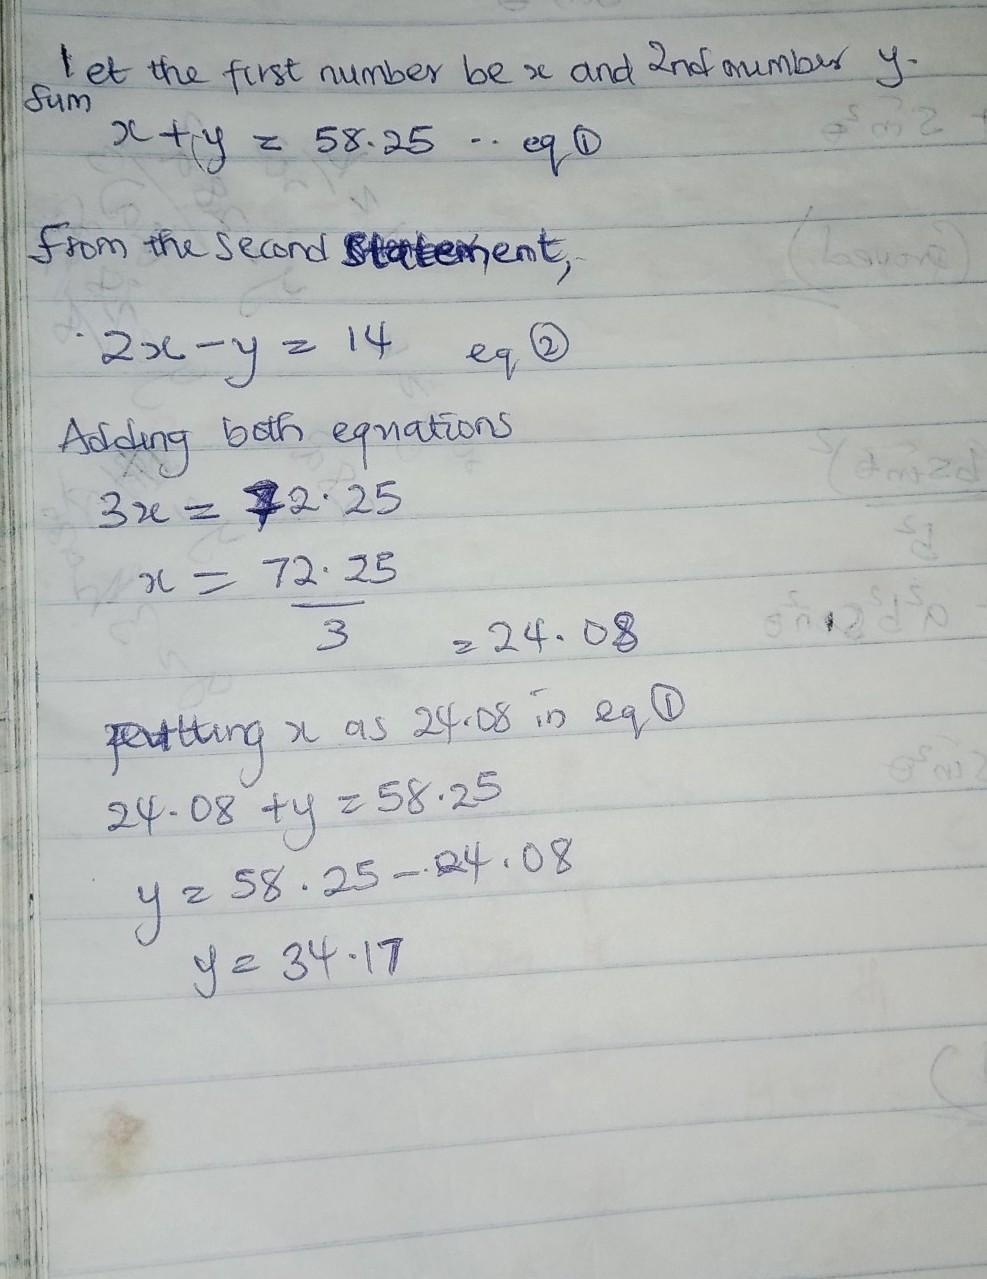 let the first number be x and 2nd number y.
Sum
x + y = 58.25 .. eq ①
from the second statement,
2x - y = 14 eq ②
Adding both equations
3x = 72.25
x = 72.25
3
= 24.08
putting x as 24.08 in eq ①
24.08 + y = 58.25
y = 58.25 - 24.08
y = 34.17